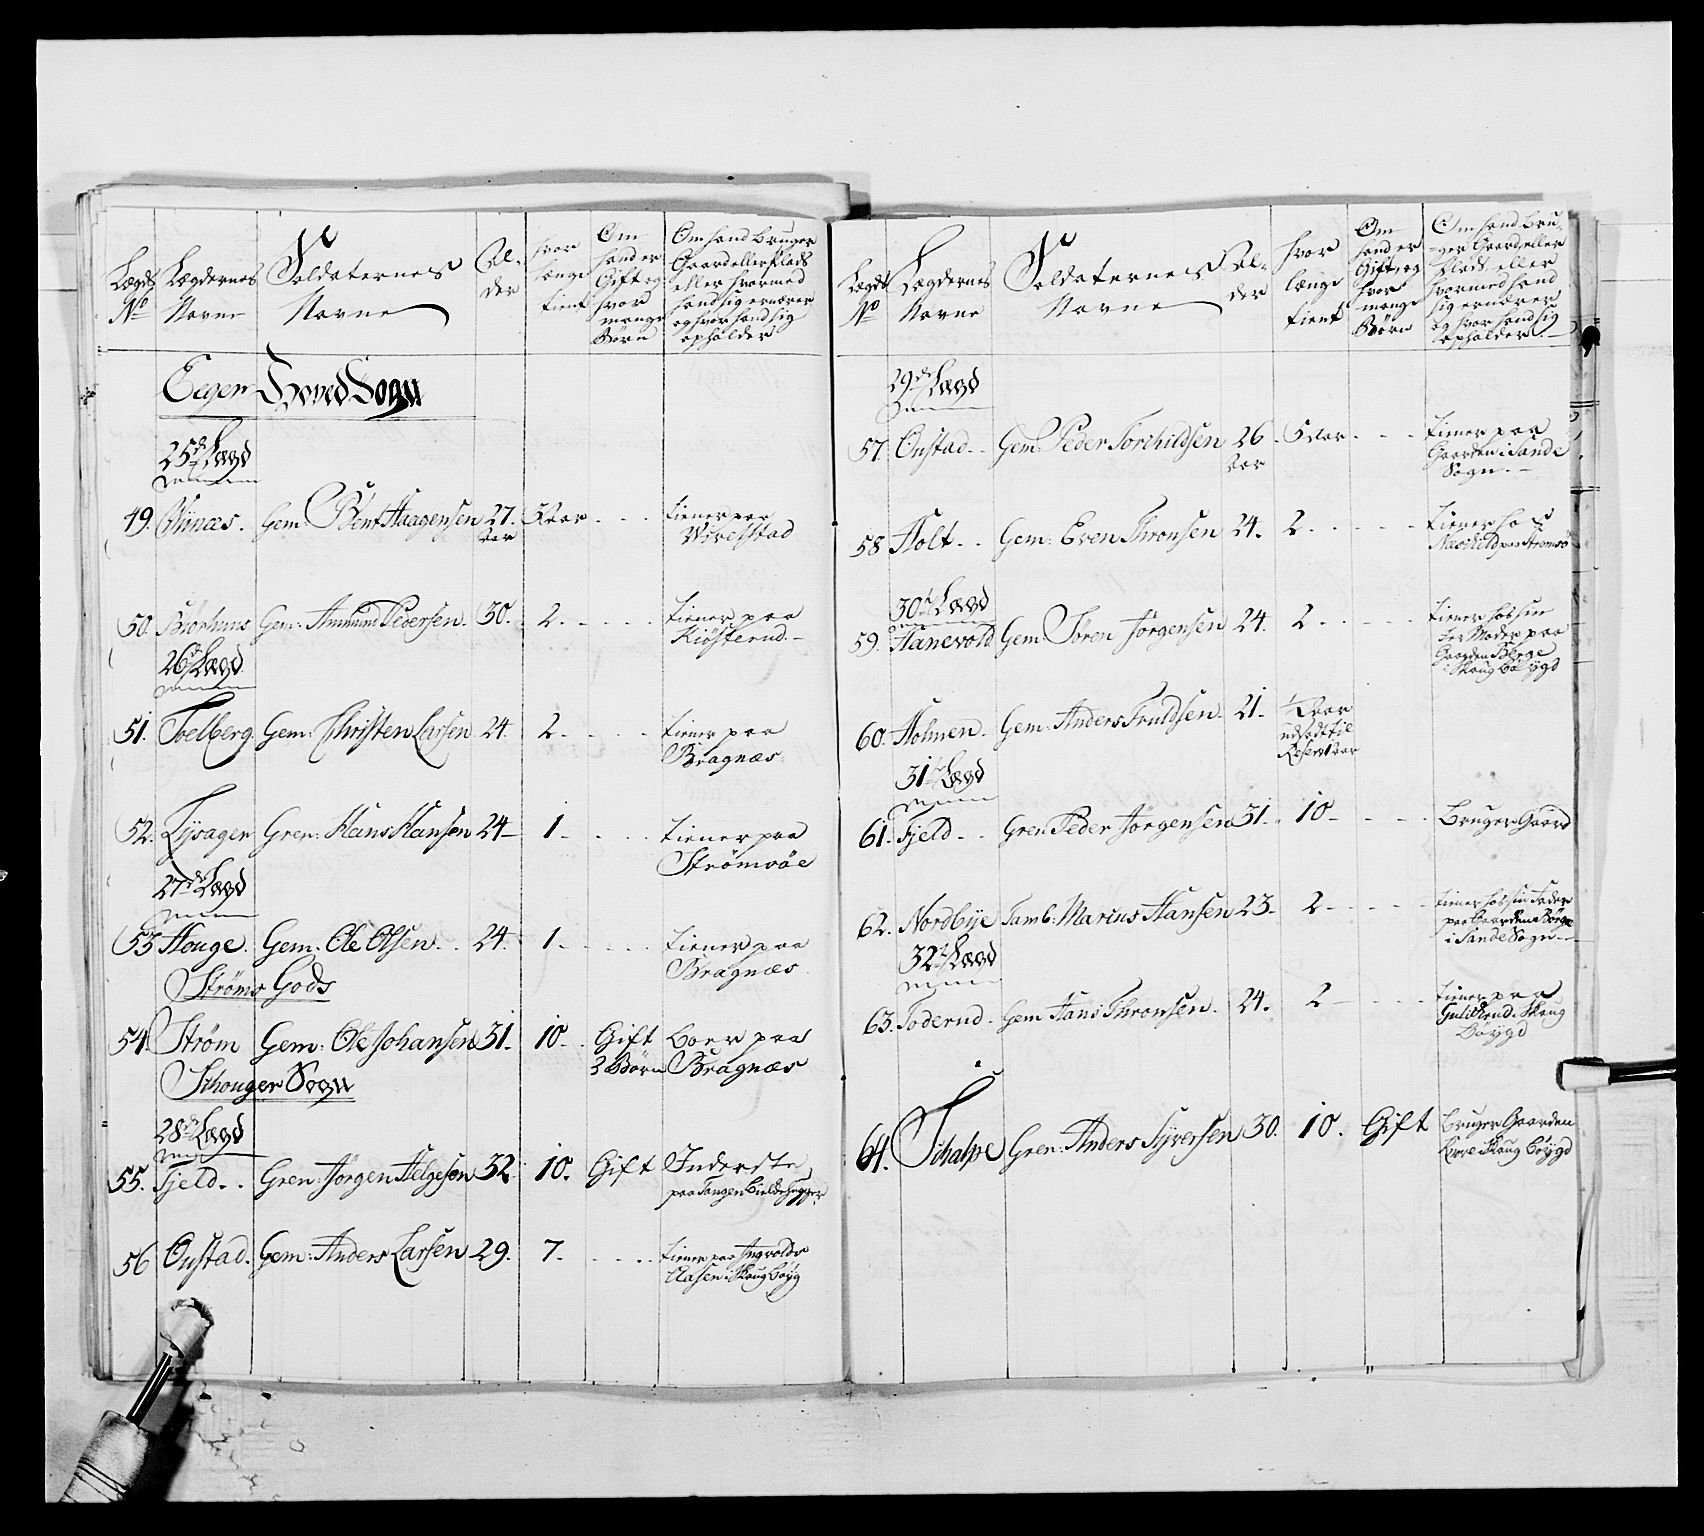 Lægds No | Lægdernes Navne | Soldaternes Navne | Al-der | hvor længe tient | Om hand er Gift og hvor mange Børn | Om hand bruger Gaard eller Plads eller hvormed hand sig ernærer og hvor hand sig opholder
Eeger Hoved Sogn
25de Lægd
49. Gem: Bent Haagensen 27. Aar 5 Aar - - - tiener paa Wivelstad
50. Gem: Amund Pedersen. 30. 2. - - - tiener paa Kiösterud
26de Lægd
51. Solberg. Gem: Christen Larsen 24. 2. - - - tiener paa Bragnæs
52. Gren: Hans Hansen 24 1. - - - tiener paa Strömsöe
27de Lægd
53 Houge. Gem: Ole Olsen. 24. 1. - - - tiener paa Bragnæs
Ströms Gods
54. Ström Gem: Ole Johansen 31. 10. Gift 3 Börn boer paa Bragnæs
Schouger Sogn
28de Lægd
55. Fjeld. Gren: Jörgen Helgesen 32. 10. Gift Inderste paa Tangen
56 Onstad. Gem: Anders Larsen 29. 7. - - - tiener paa Aasen i Skoug böyg
Lægds No | Lægdernes Navne | Soldaternes Navne | Al-der | hvor længe tient | Om hand er Gift og hvor mange Börn | Om hand bru-ger Gaard eller Plads eller hvormed hand sig ernærer og hvor hand sig opholder.
29de Lægd
57. Onstad. Gem: Peder Torchildsen 26. Aar 5 Aar - - - tiener paa Gaarden i Sande Sogn.
58 Holt. Gem: Even Thronsen 24. 2. - - - tiener hos paa Strömsö
30te Lægd
59. Hanevold Gem: Sören Jörgensen 24. 2. - - - tiener hos sin Moder paa Gaarden Berge i Skoug böygd
60. Holmen. Gem: Anders Truldsen. 21. 1/2 Aar udsadt til
31te Lægd
61. Fjeld. Gren: Peder Jörgensen 31. 10. - - - bruger Gaard
62. Nordbÿe Tamb: Marius Hansen 23. 2. - - - tiener hos sin Fader paa Gaarden Börge i Sande Sogn.
32te Lægd
63. Foderud. Gem: Hans Thronsen. 24. 2 - - - tiener paa i Skoug böygd
64. Gren: Anders Syversen 30. 10. Gift bruger Gaarden i Skoug böygd